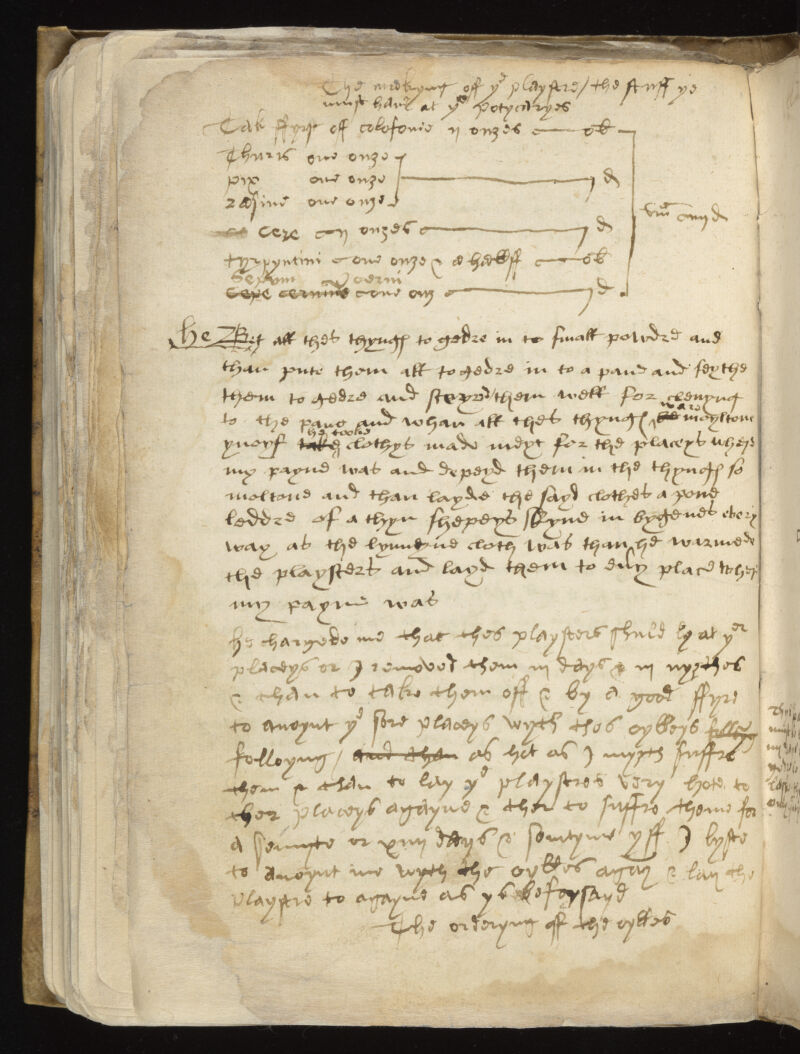 The makyng off yᵉ playstre / the stuff ye
must have at yᵉ potycaryes
Tak ffyrst off colofonie ij onzes ob
Thuris one onze
pix one onze j d
rasine one onze
cere iij onzes j d
viijᵈ
tyrpyntini one onze & a halff ob
Sepum cervi
cepe cervine one onz j d
he Bet all thes thyngs to gedre in to small powdre and
than pute them all to gedre in to a pane and seythe
them to gedre and steryd them well for clevyng
to the pane and whan all thes thyngs ware moyltone
ynoyf he tooke clothys made mext for the placeys where
my payne was and depeyd them in the thyngs so
moltone and than layde the sayd clothes a pone
leddre of a thyn shepeys skyne in bygenes every
way as the lynnyne cloth was than he warmede
the playsters and layd them to every place wher
my payne was
he chargede me that thes playsters shuld ly at yᵉʳ
placeys or I removed them iij days & iij nyythes
& than to take them off & by a good ffyre
to anoynt yᵉ sore placeys wyth thes oylleys
folloyng / and than as hot as I myyth suffre
them & than to lay yᵉ playstres very hote to
ther placeys agayne & then to suffre theme for
a sennyte or xiiij days & somtyme yff I lyste
to anoynt me wyth the oylles agay & lay the
playstre to agayne as ys beforsayd
The orderyng off the oylles